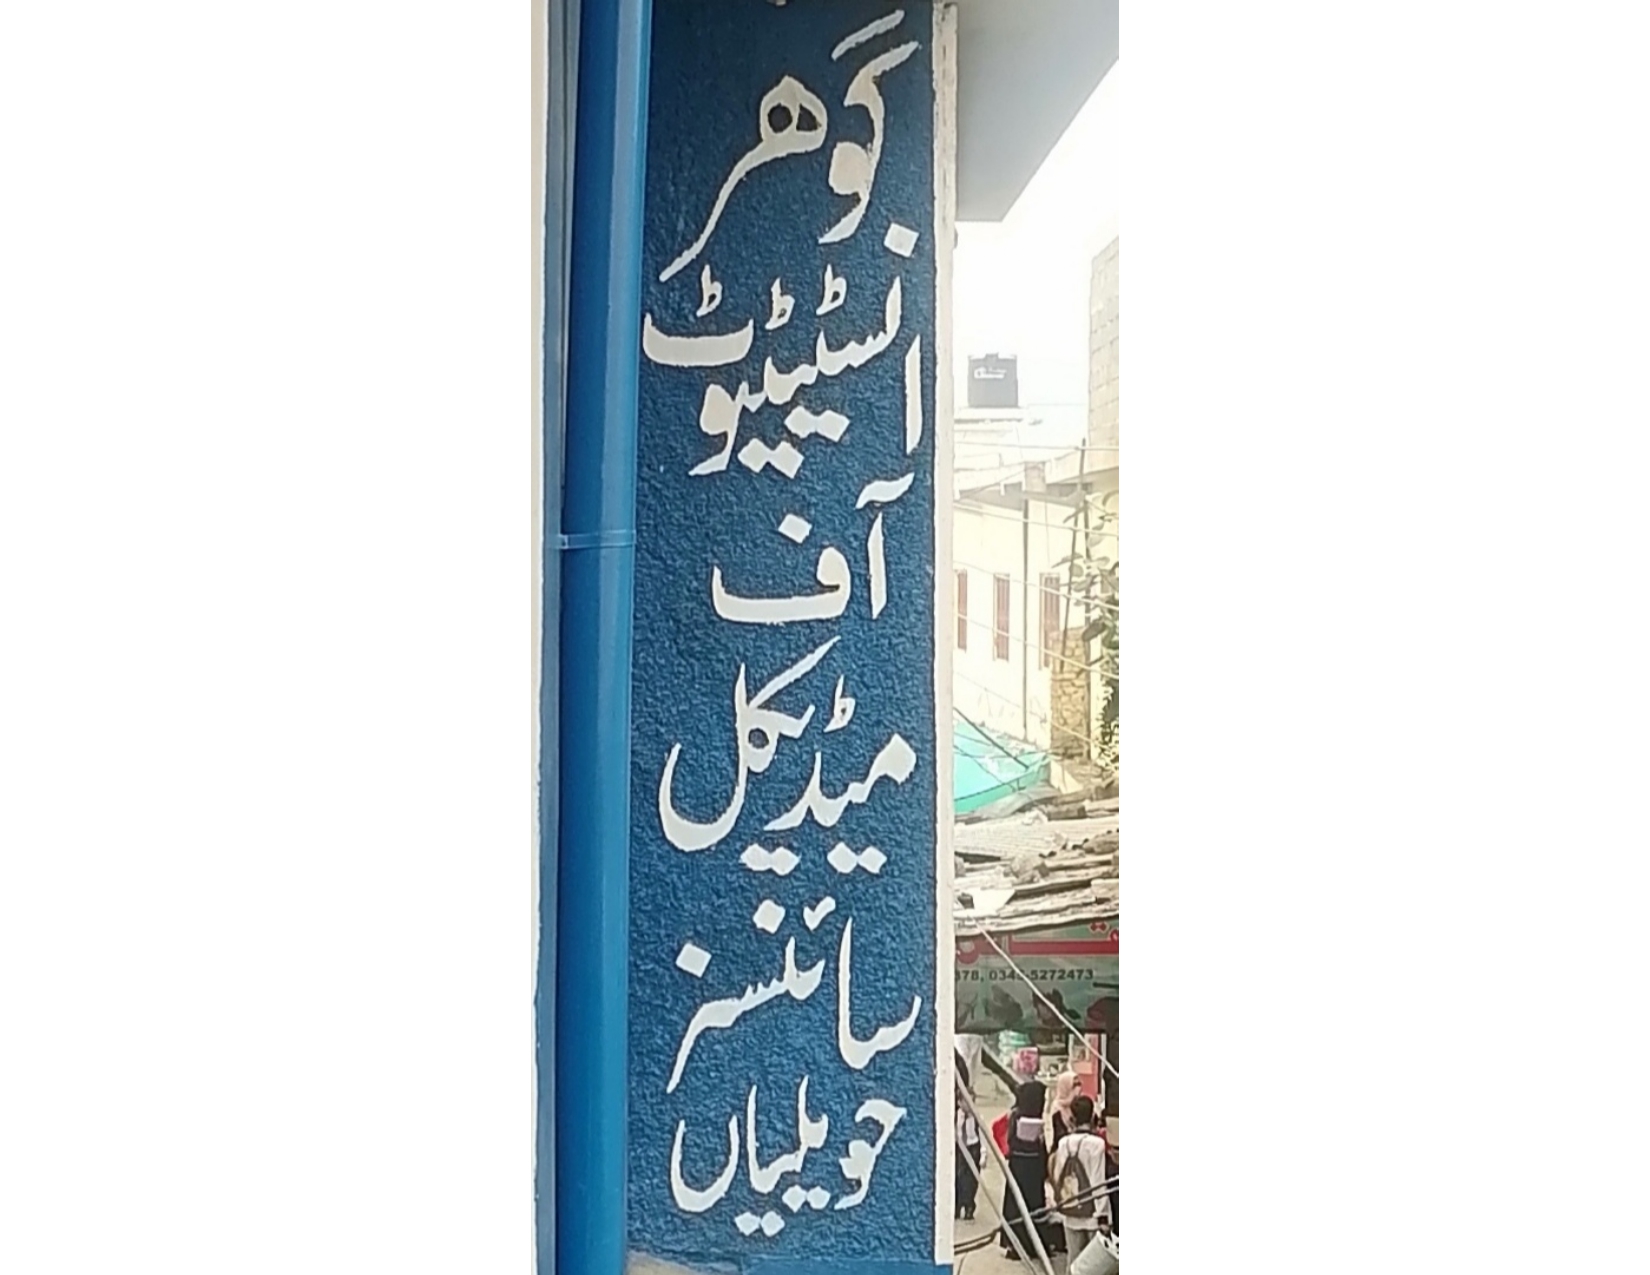 گوھر
انسٹیٹیوٹ
آف
میڈیکل
سائنسز
حویلیاں
378, 0346-5272473